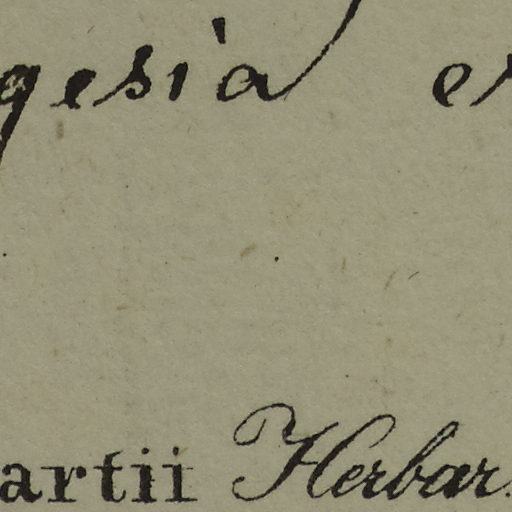 gesia er
artii Herbar.